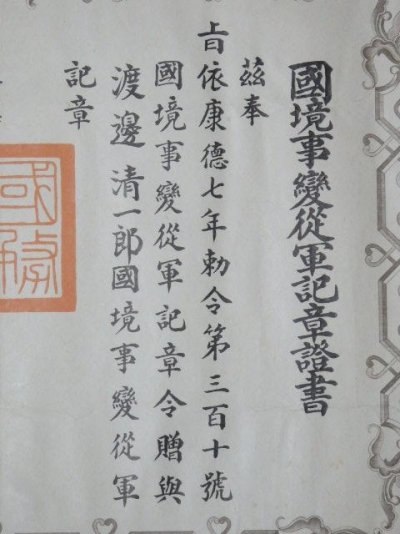 國境事變從軍記章證書
茲奉
旨依康德七年勅令第三百十號
國境事變從軍記章令贈與
渡邊清一郎國境事變從軍
記章
國
務